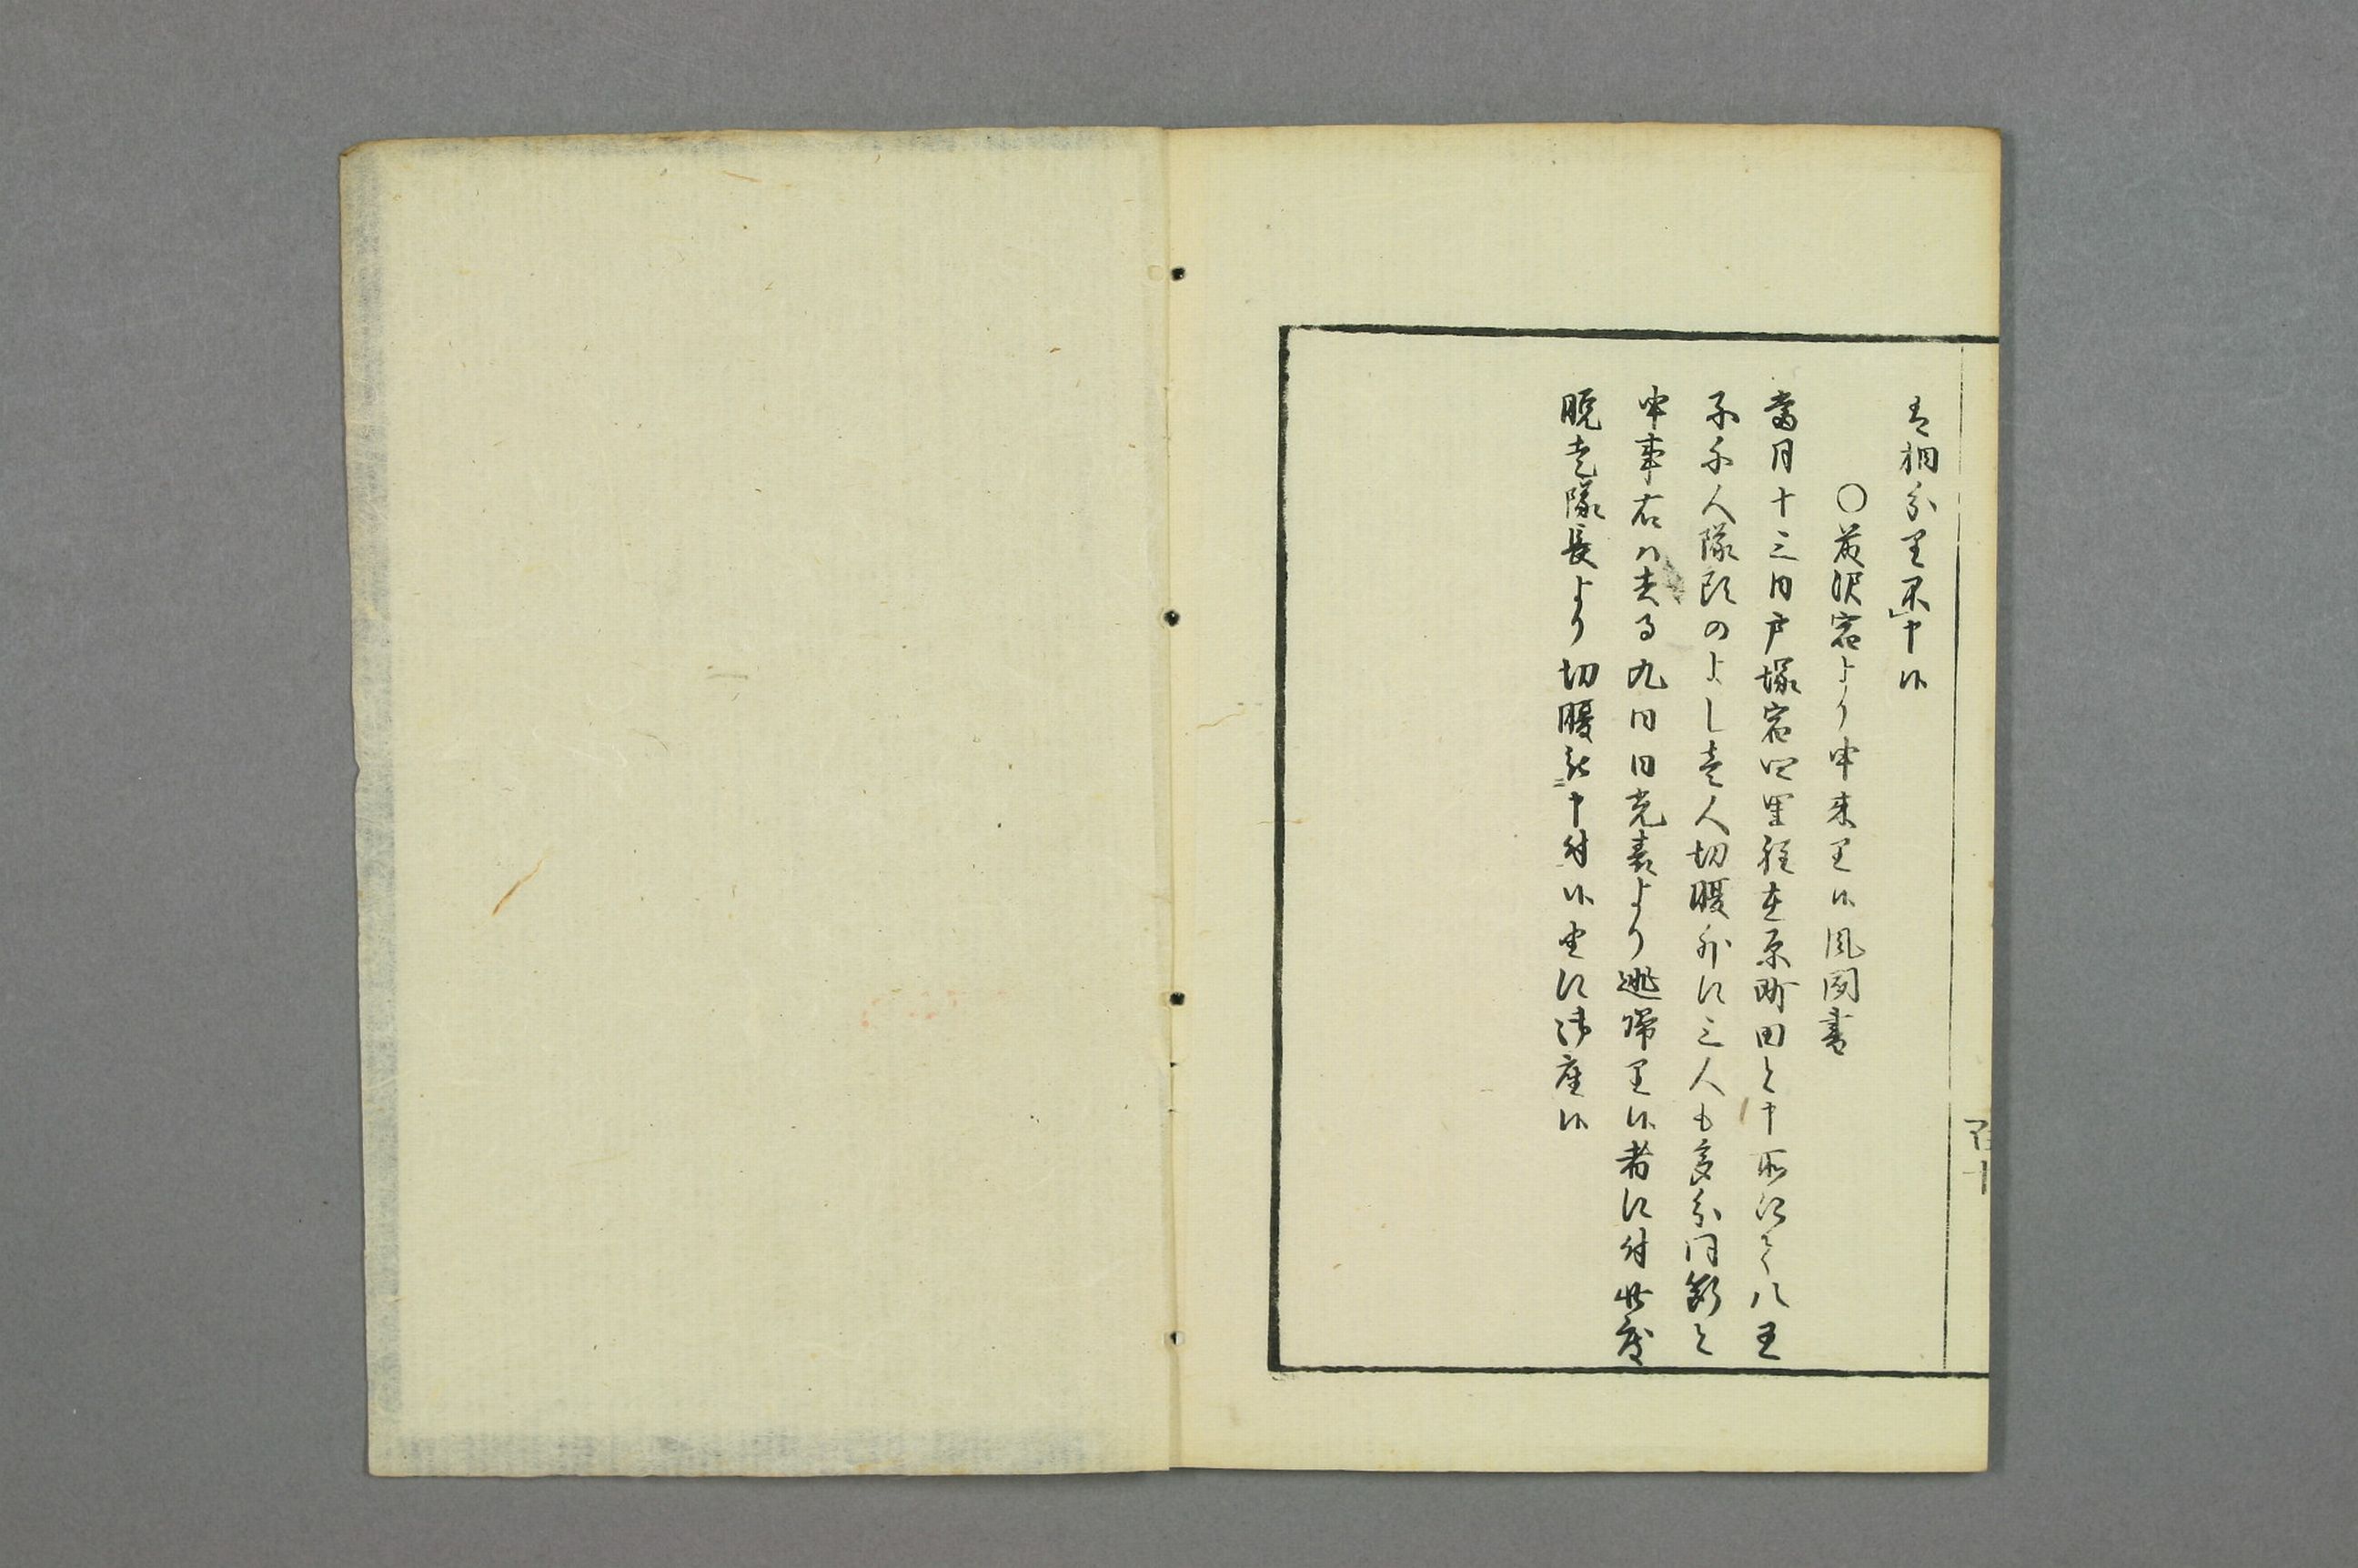 相分り不申候
○藤沢宿より申来り候風聞書
當月十三日戸塚宿四里程在原町田と申所にて八王
子千人隊頭のよし壱人切腹外に三人も多分同断と
申事右ハ去る九日日光表より逃帰り候者に付此度
脱走隊長より切腹被申付候由に御座候